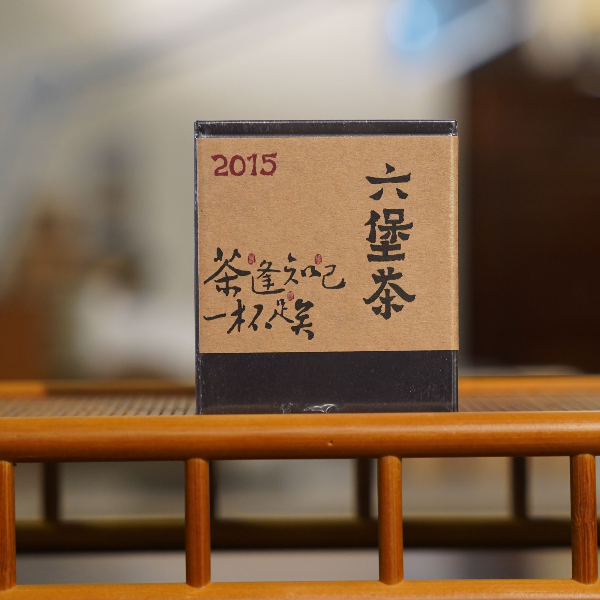 2015
六堡茶
茶逢知己
一杯足矣